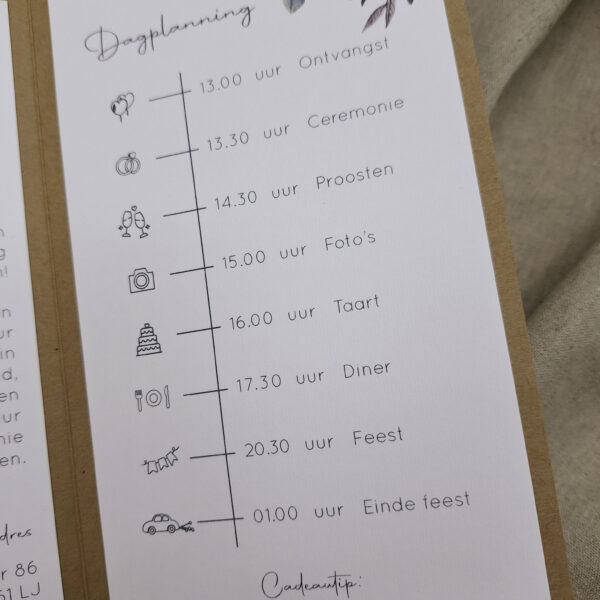 Dagplanning
13.00 uur Ontvangst
13.30 uur Ceremonie
14.30 uur Proosten
15.00 uur Foto's
16.00 uur Taart
17.30 uur Diner
20.30 uur Feest
01.00 uur Einde feest
Cadeautip:
86
LJ